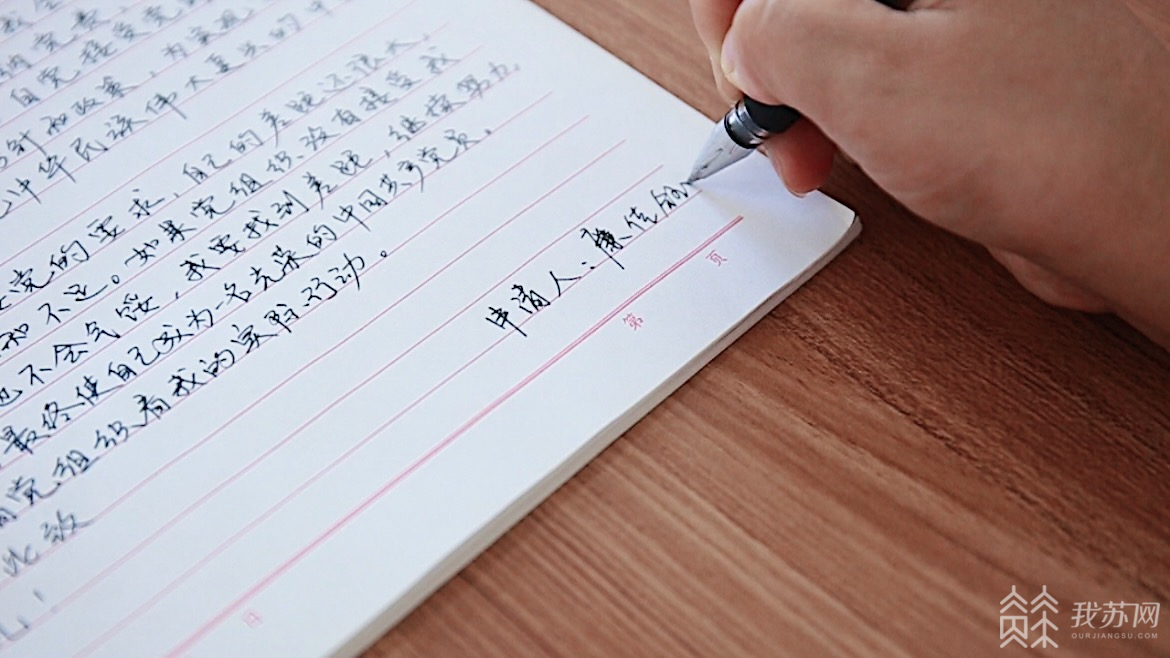 自觉接受党
针和政策，为实现
中华民族伟大复兴的
党的要求，自己的差距还很大，
和不足。如果党组织没有接受我
也不会气馁，我要找到差距，继续努力，
最终使自己成为一名光荣的中国共产党员。
请党组织看我的实际行动。
此致
申请人：廉佳
第 页
我苏网
OURJIANGSU.COM